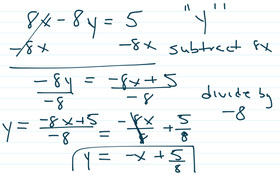 8x - 8y = 5 "y"
-8x -8x subtract 8x
-8y/-8 = -8x+5/-8 divide by -8
y = -8x+5/-8 = -8x/8 + 5/8
y = -x + 5/8